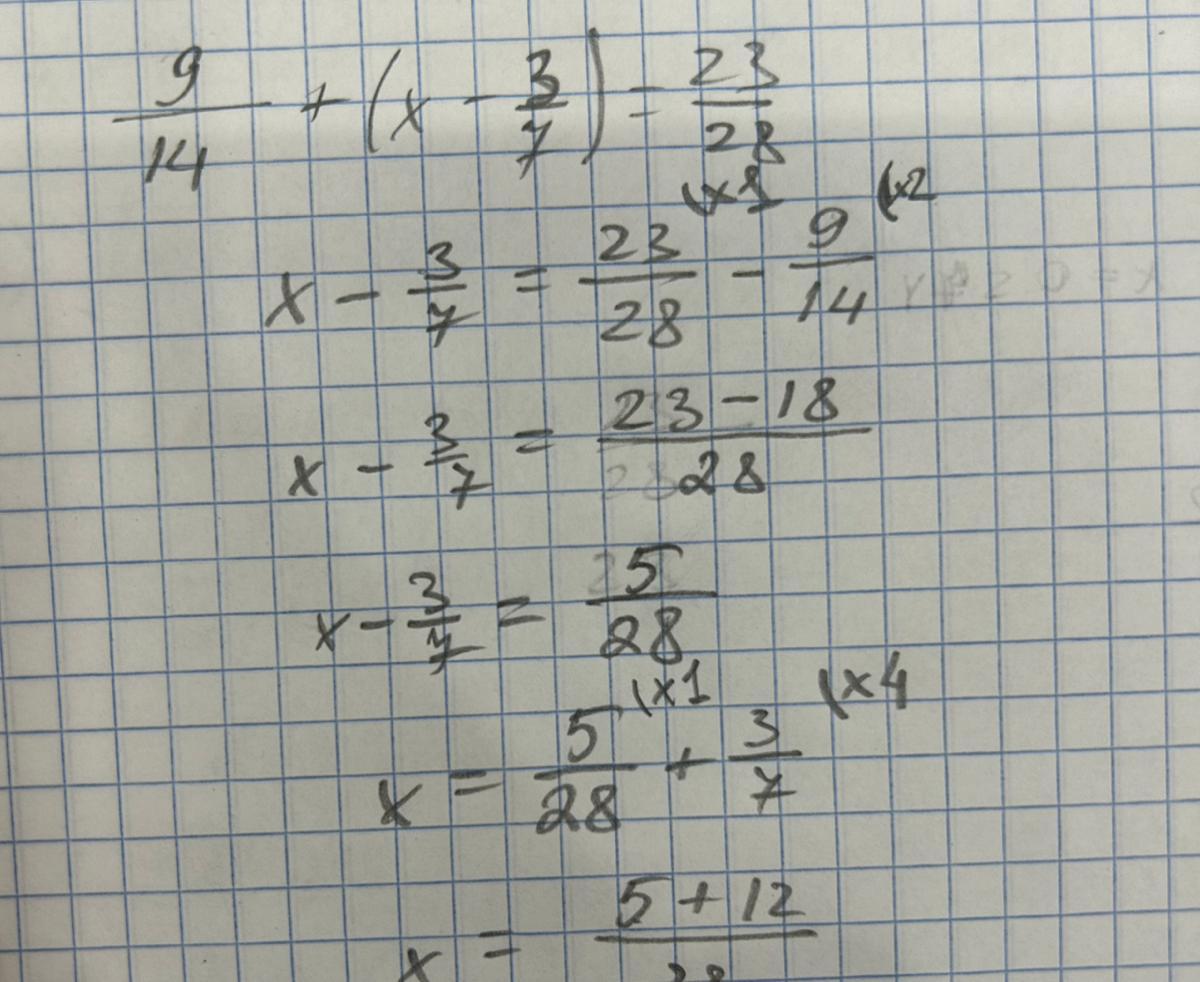 9/14 + (x - 3/7) = 23/28
x - 3/7 = 23/28 (x1 - 9/14 (x2
x - 3/7 = 23 - 18/28
x - 3/7 = 5/28
x = 5/28 (x1 + 3/7 (x4
x = 5 + 12/28